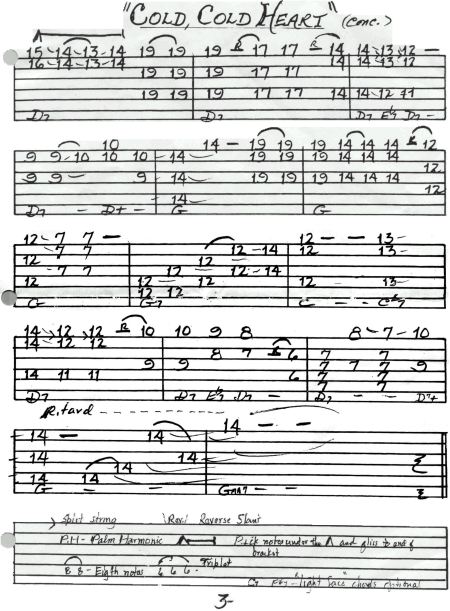 "COLD, COLD HEART" (CONC.)
15 14 13 14 19 19 19 R 17 17 R 14 14 13 12 —
16 14 13 14 19 19 17 17 14 14 13 12
19 19 19 17 17 14 14 12 11
D7 D7 D7 Eb7 D7 —
10 14 — 19 19 19 14 14 14 R 12
9 9 10 10 10 14 19 19 19 14 14 14 12
9 9 9 14 19 19 19 14 14 14 12
14
D7 — D+ — G G
12 7 7 — 12 14 12 — — 13
12 7 7 12 12 13
7 7 12 12 14
12 12 12 12 12 13
12 12
G G7 C — — C#7
14 12 12 R 10 10 9 8 8 7 10
14 12 12 8 7 R 6 7 7
9 9 7 7 7 9
14 11 11 6 7 7
7 7
D7 D7 Eb7 D7 — D7 — — D7+
Ritard
14 — 14 14 — —
14 14
14
14 14
G — — GMA7 — —
Split string (Rev.) Reverse Slant
P.H - Palm Harmonic Pick notes under the Λ and gliss to end of
bracket
8 8 - Eighth notes 6 6 6 - Triplet
"light face" chords optional
3-